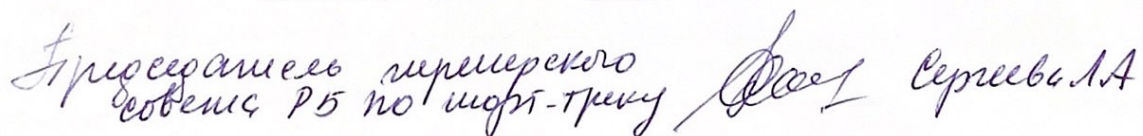 Председатель тренерского
совета РБ по шорт-треку Сергеева ЛА